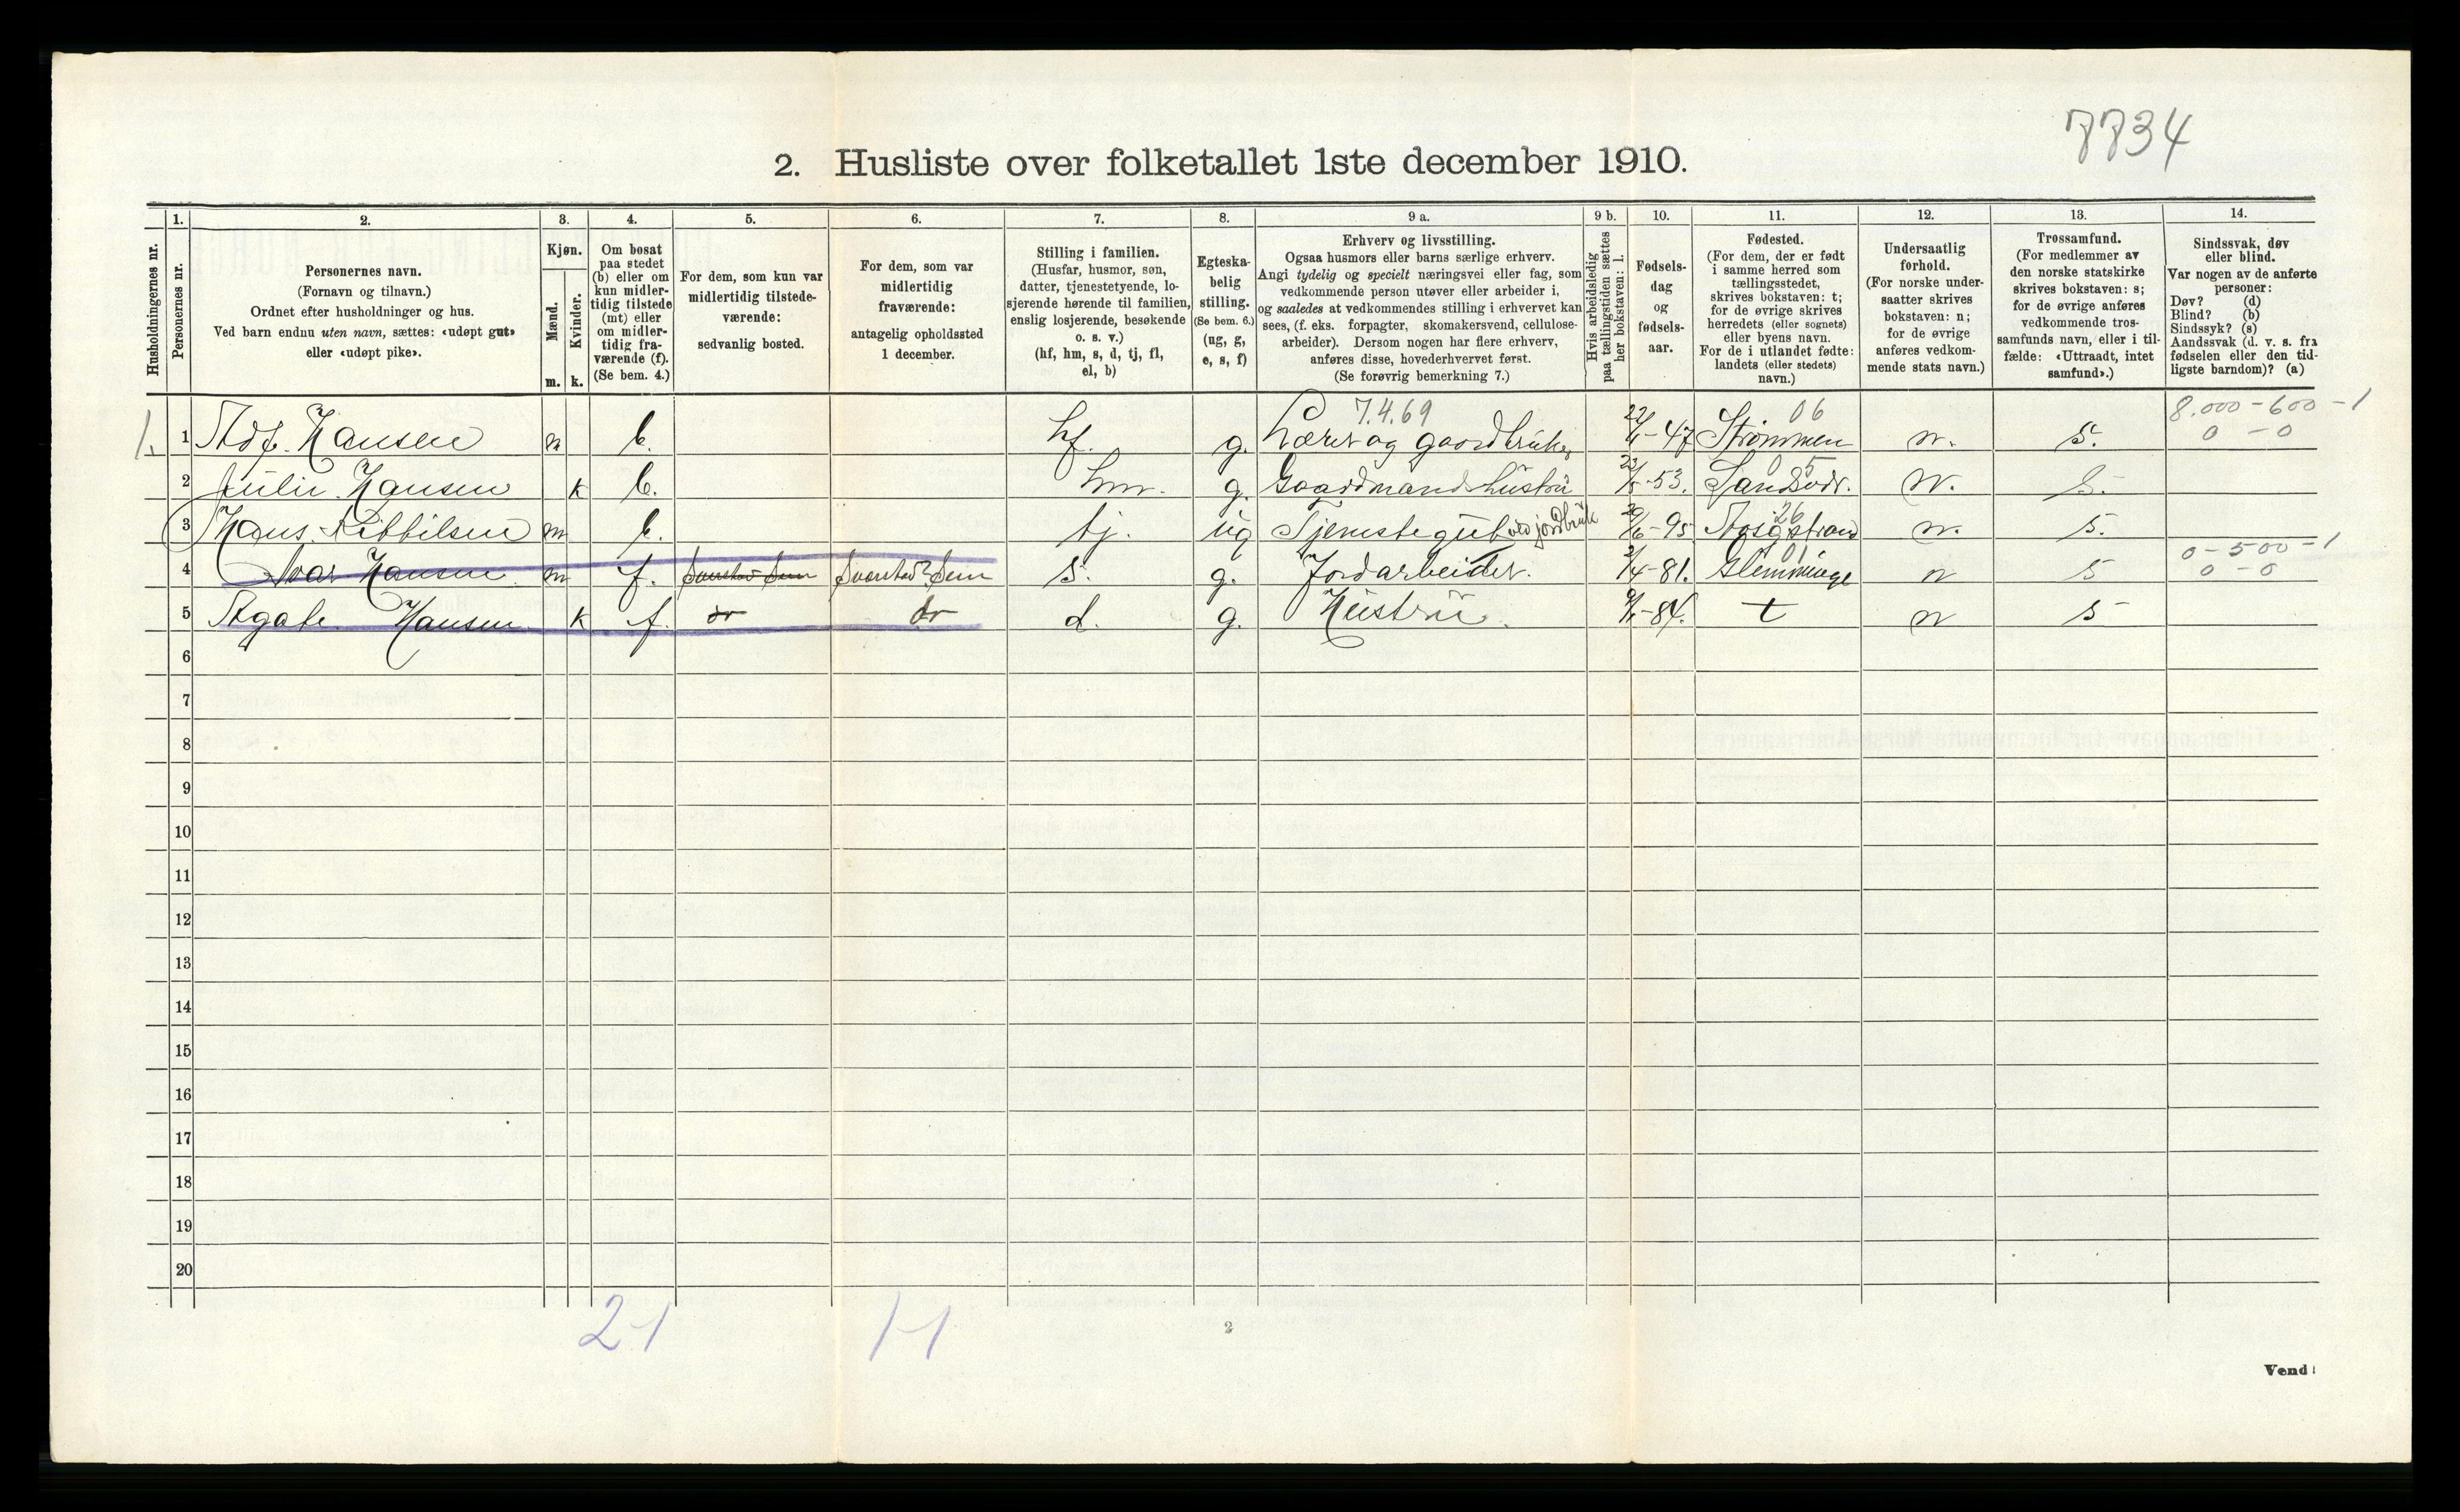 7734
2. Husliste over folketallet 1ste december 1910.
Husholdningernes nr.
1. Personernes nr.
2. Personernes navn. (Fornavn og tilnavn.) Ordnet efter husholdninger og hus. Ved barn endnu uten navn, sættes: «udøpt gut» eller «udøpt pike».
3. Kjøn. Mænd. m. Kvinder. k.
4. Om bosat paa stedet (b) eller om kun midlertidig tilstede (mt) eller om midlertidig fraværende (f). (Se bem. 4.)
5. For dem, som kun var midlertidig tilstedeværende: sedvanlig bosted.
6. For dem, som var midlertidig fraværende: antagelig opholdssted 1 december.
7. Stilling i familien. (Husfar, husmor, søn, datter, tjenestetyende, losjerende hørende til familien, enslig losjerende, besøkende o. s. v.) (hf, hm, s, d, tj, fl, el, b)
8. Egteskabelig stilling. (Se bem. 6.) (ug, g, e, s, f)
9 a. Erhverv og livsstilling. Ogsaa husmors eller barns særlige erhverv. Angi tydelig og specielt næringsvei eller fag, som vedkommende person utøver eller arbeider i, og saaledes at vedkommendes stilling i erhvervet kan sees, (f. eks. forpagter, skomakersvend, cellulosearbeider). Dersom nogen har flere erhverv, anføres disse, hovederhvervet først. (Se forøvrig bemerkning 7.)
9 b. Hvis arbeidsledig paa tællingstiden sættes her bokstaven: l.
10. Fødselsdag og fødselsaar.
11. Fødested. (For dem, der er født i samme herred som tællingsstedet, skrives bokstaven: t; for de øvrige skrives herredets (eller sognets) eller byens navn. For de i utlandet fødte: landets (eller stedets) navn.)
12. Undersaatlig forhold. (For norske undersaatter skrives bokstaven: n; for de øvrige anføres vedkommende stats navn.)
13. Trossamfund. (For medlemmer av den norske statskirke skrives bokstaven: s; for de øvrige anføres vedkommende trossamfunds navn, eller i tilfælde: «Uttraadt, intet samfund».)
14. Sindssvak, døv eller blind. Var nogen av de anførte personer: Døv? (d) Blind? (b) Sindssyk? (s) Aandssvak (d. v. s. fra fødselen eller den tidligste barndom)? (a)
7.4.69 06 8.000-600-1
1. 1 Adf. Hansen m b. hf. g. Lærer og gaardbruker -47 Strømmen n. s. 0-0
05
2 Julie Hansen k b. hm. g. Gaardmandshustru -53. Sandsvær. n. s.
26
3 Hans m b. tj. ug Tjenstegut ved jordbruk -95 Aasgstrand n. s.
01 0-500-1
4 Hansen m f. Sem s. g. Jordarbeider. 2/4-81. Glemminge n s 0-0
5 Agate Hansen k f. do do d. g. Hustru. -84. t n s
6
7
8
9
10
11
12
13
14
15
16
17
18
19
20
2-1 1-1
2
Vend!